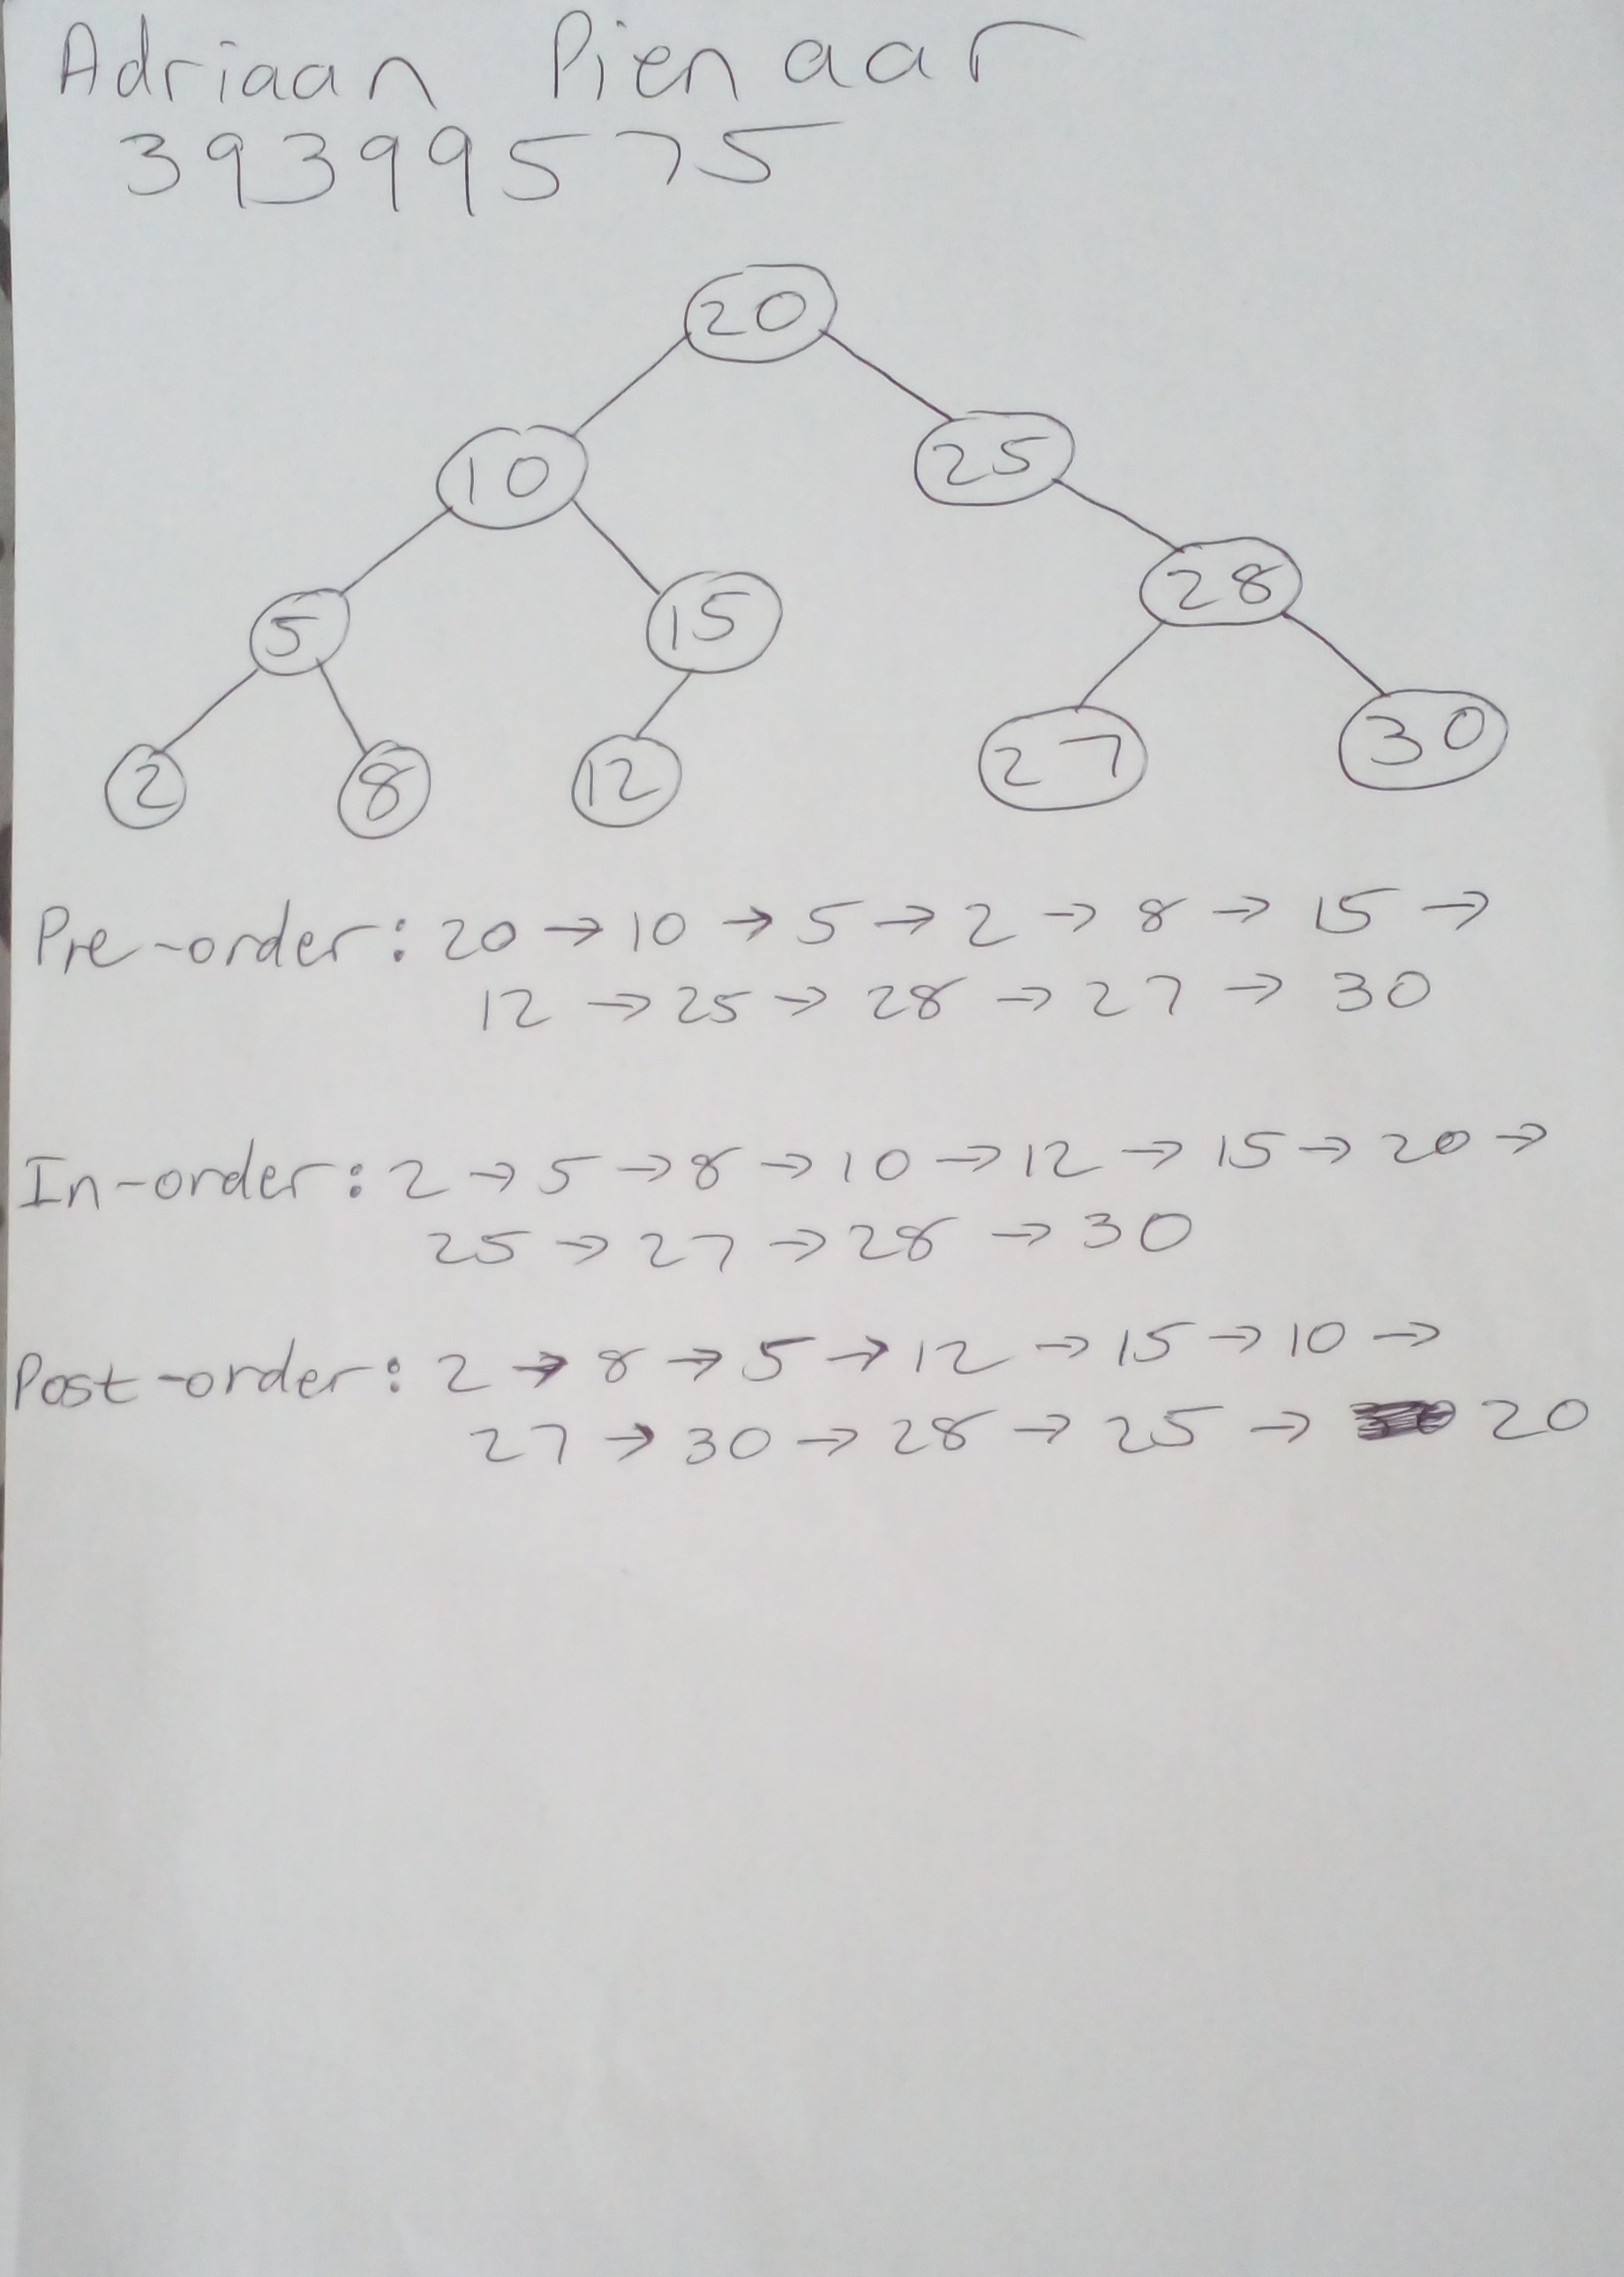 Adriaan Pienaar
39399575
20
10 25
5 15 28
2 8 12 27 30
Pre-order: 20 → 10 → 5 → 2 → 8 → 15 →
12 → 25 → 28 → 27 → 30
In-order: 2 → 5 → 8 → 10 → 12 → 15 → 20 →
25 → 27 → 28 → 30
Post-order: 2 → 8 → 5 → 12 → 15 → 10 →
27 → 30 → 28 → 25 → 20